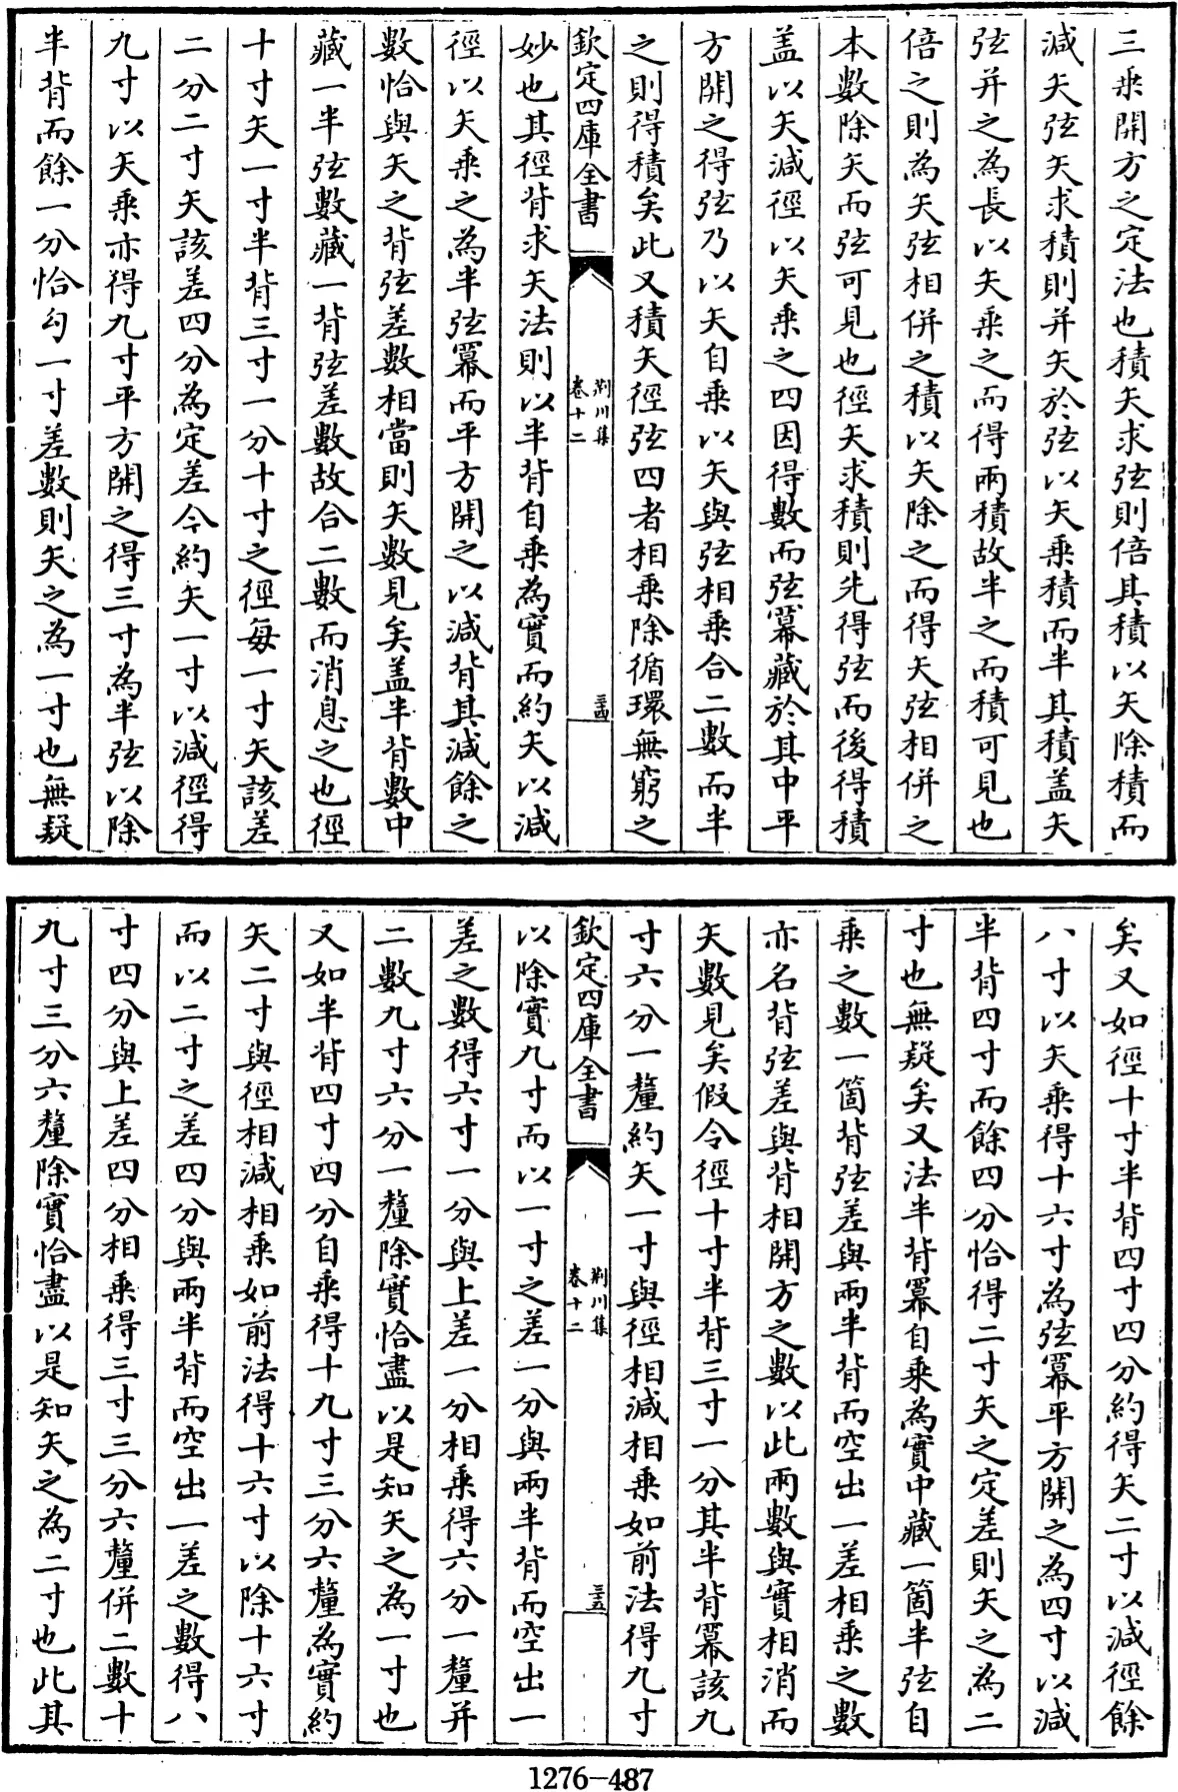 三乘開方之定法也積矢求弦則倍其積以矢除積而
減矢弦矢求積則并矢於弦以矢乘積而半其積盖矢
弦并之為長以矢乘之而得兩積故半之而積可見也
倍之則為矢弦相併之積以矢除之而得矢弦相併之
本數除矢而弦可見也徑矢求積則先得弦而後得積
盖以矢減徑以矢乘之四因得數而弦冪藏於其中平
方開之得弦乃以矢自乘以矢與弦相乘合二數而半
之則得積矣此又積矢徑弦四者相乘除循環無窮之
欽定四庫全書
荆川集
卷十二
三十四
妙也其徑背求矢法則以半背自乘為實而約矢以減
徑以矢乘之為半弦冪而平方開之以減背其減餘之
數恰與矢之背弦差數相當則矢數見矣盖半背數中
藏一半弦數藏一背弦差數故合二數而消息之也徑
十寸矢一寸半背三寸一分十寸之徑每一寸矢該差
二分二寸矢該差四分為定差今約矢一寸以減徑得
九寸以矢乘亦得九寸平方開之得三寸為半弦以除
半背而餘一分恰勾一寸差數則矢之為一寸也無疑
矣又如徑十寸半背四寸四分約得矢二寸以減徑餘
八寸以矢乘得十六寸為弦冪平方開之為四寸以減
半背四寸而餘四分恰得二寸矢之定差則矢之為二
寸也無疑矣又法半背冪自乘為實中藏一箇半弦自
乘之數一箇背弦差與兩半背而空出一差相乘之數
亦名背弦差與背相開方之數以此兩數與實相消而
矢數見矣假令徑十寸半背三寸一分其半背冪該九
寸六分一釐約矢一寸與徑相減相乘如前法得九寸
欽定四庫全書
荆川集
卷十二
三十五
以除實九寸而以一寸之差一分與兩半背而空出一
差之數得六寸一分與上差一分相乘得六分一釐并
二數九寸六分一釐除實恰盡以是知矢之為一寸也
又如半背四寸四分自乘得十九寸三分六釐為實約
矢二寸與徑相減相乘如前法得十六寸以除十六寸
而以二寸之差四分與兩半背而空出一差之數得八
寸四分與上差四分相乘得三寸三分六釐併二數十
九寸三分六釐除實恰盡以是知矢之為二寸也此其
1276-487